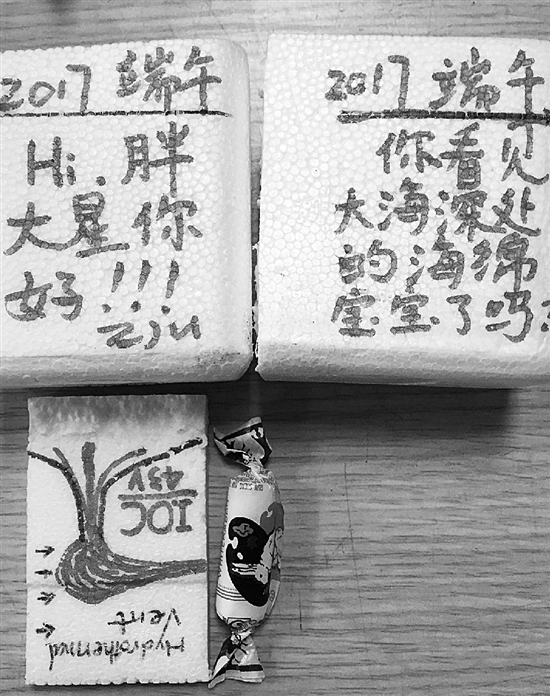 2017 端午
Hi. 胖
大星你
好!!!
zju
2017 端午
你看见
大海深处
的海绵
宝宝了吗?
IOC
43V
Hydrothermal
Vent